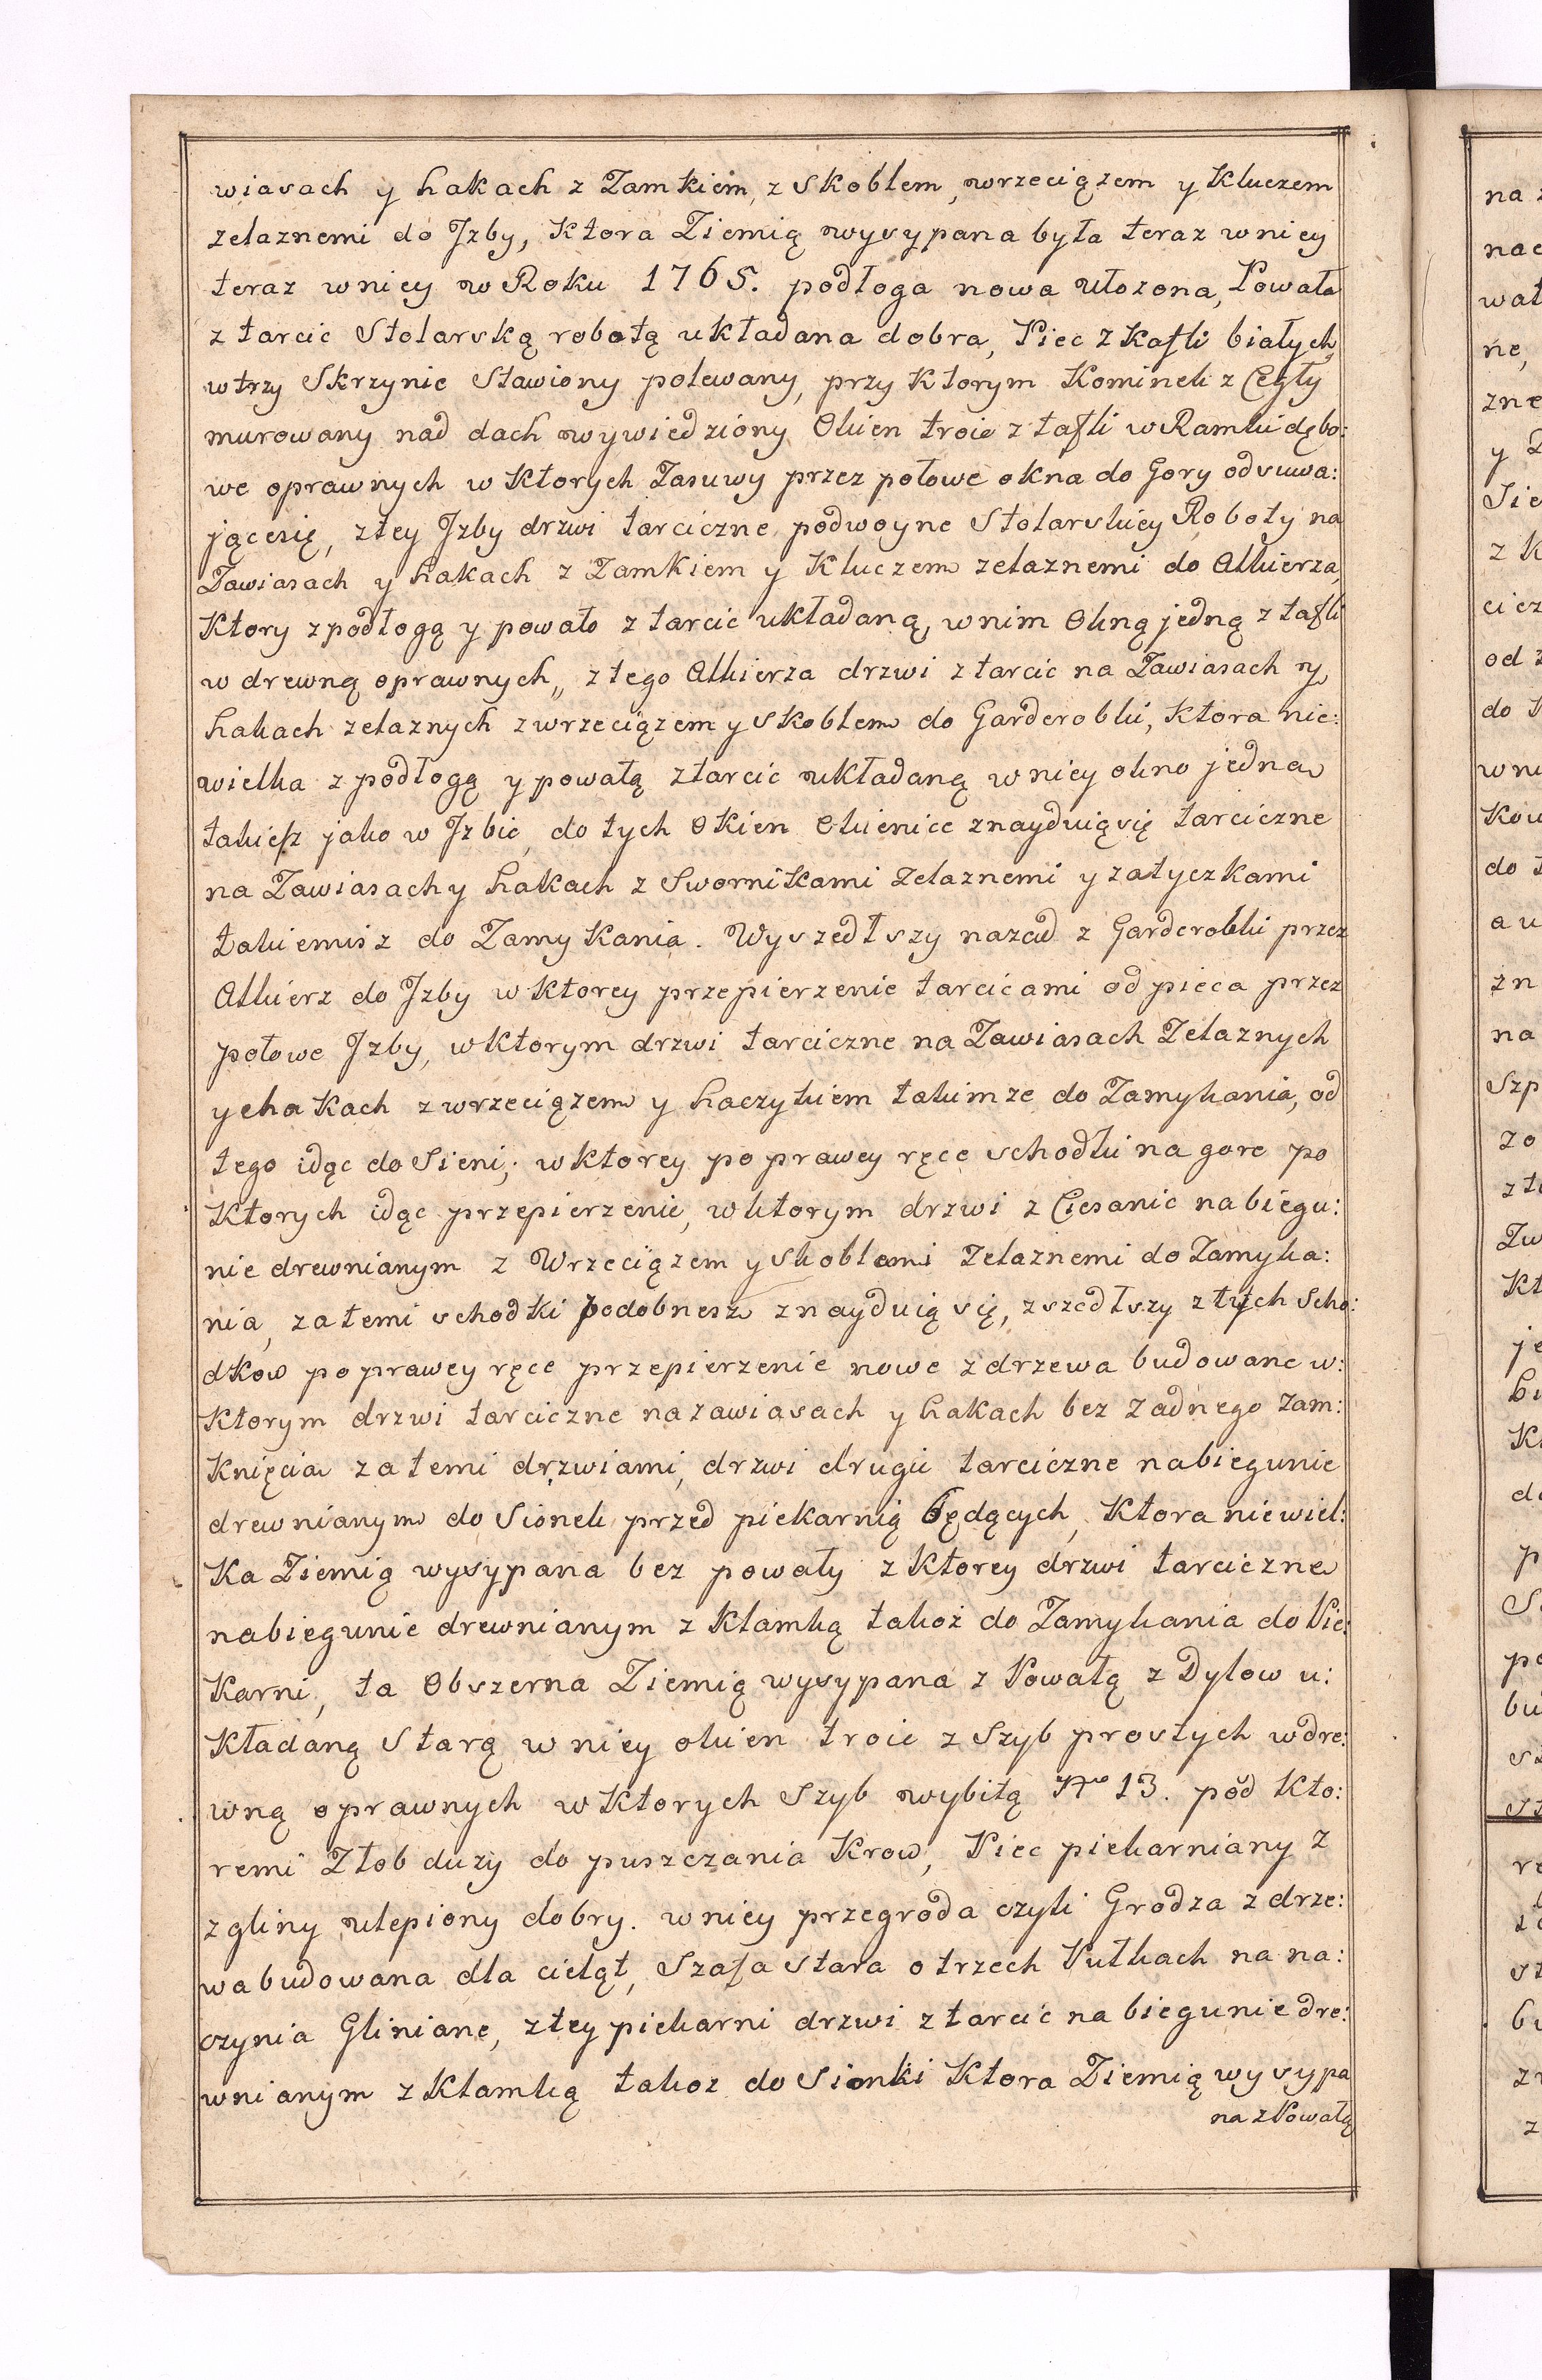 wiasach y hakach z Zamkiem, z skoblem, wrzeciązem y Kluczem
zelaznemi do Jzby, Ktora Ziemią wysypana była teraz wniey
teraz wniey w Roku 1765. podłoga nowa ułozona, Powała
z tarcic Stolarską robotą układana dobra, Piec z Kafli białych,
wtrzy Skrzynie Stawiony polewany, przy Ktorym Kominek z Cegły
murowany nad dach wywiedziony Okien troie z tafli w Ramki dębo:
we oprawnych w Ktorych Zasuwy przez połowe okna do Gory odsuwa:
jącesię, ztey Jzby drzwi tarciczne podwoyne Stolarskiey Roboty na
Zawiasach y hakach z Zamkiem y Kluczem zelaznemi do Alkierza,
Ktory zpodłogą y powało z tarcic układaną, wnim Okną jedną z tafli
w drewną oprawnych, z tego Alkierza drzwi z tarcic na Zawiasach y
hakach zelaznych zwrzeciązem y skoblem do Garderobki, Ktora nie:
wielka z podłogą y powałą ztarcic układaną wniey okno jedna
takiesz jako w Jzbie, do tych Okien Okienice znayduią się tarciczne
na Zawiasach y hakach z Swornikami Zelaznemi y zatyczkami
takiemisz do Zamykania. Wyszedłszy nazad z Garderobki przez
Alkierz do Jzby w Ktorey przepierzenie tarcicami od pieca przez
połowe Jzby, wktorym drzwi tarciczne na Zawiasach Zelaznych
ychakach zwrzeciązem y haczykiem takimze do Zamykania, od
tego idąc do Sieni, wktorey po prawey ręce schodki na gore po
Ktorych idąc przepierzenie, wktorym drzwi z Ciesanic nabiegu:
nie drewnianym z Wrzeciązem y skoblami Zelaznemi do Zamyka:
nia, zatemi schodki podobnesz znayduią się, zszedłszy z tych Scho:
dkow poprawey ręce przepierzenie nowe zdrzewa budowane w:
Ktorym drzwi tarciczne nazawiasach y hakach bez Zadnego Zam:
Knięcia zatemi drzwiami, drzwi drugie tarciczne nabiegunie
drewnianym do Sionek przed piekarnią będących, Ktora niewiel:
Ka Ziemią wysypana bez powały z Ktorey drzwi tarciczne
nabiegunie drewnianym z Klamką takoż do Zamykania do Pie:
Karni, ta Obszerna Ziemią wysypana z Powałą z Dylow u:
Kładaną Starą wniey okien troie z Szyb prostych wdre:
wną oprawnych w Ktorych Szyb wybitą No 13. pod Kto:
remi Złob duży do puszczania Krow, Piec piekarniany z
zgliny ulepiony dobry. wniey przegroda czyli Grodza zdrze:
wa budowana dla cieląt, Szafa stara o trzech Pułkach na na:
czynia Gliniane, ztey piekarni drzwi z tarcic na biegunie dre:
wnianym z Klamką takoz do Sionki Ktora Ziemią wysypa
na z Powałą